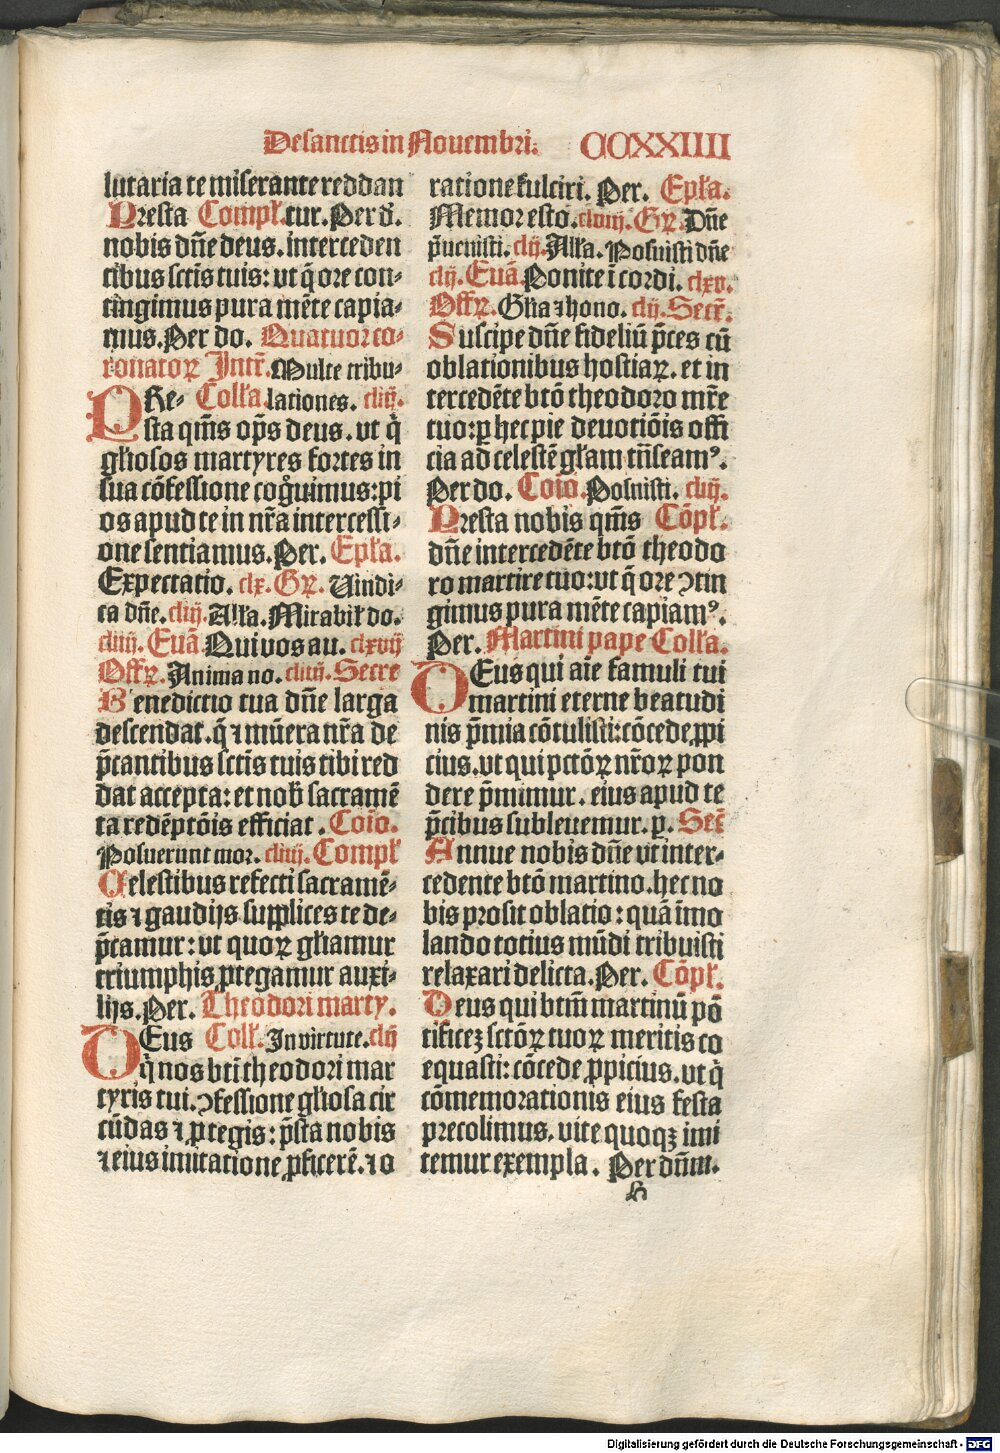 De sanctis in Nouembri. CCXXIIII
lutaria te miserante reddan
Presta Compł. tur. Per d.
nobis dñe deus. interceden
tibus sctīs tuis: vt q̄ ore con-
tingimus pura mēte capia-
mus. Per do. Quatuor co-
ronatoꝝ Intr̄. Multe tribu-
PRe- Colła. lationes. cliij.
sta qm̄s op̄s deus. vt q̄
głiosos martyres fortes in
sua cōfessione coḡuimus: pi
os apud te in nr̄a intercessi-
one sentiamus. Per. Epła.
Expectatio. clx. Gꝝ. Vindi-
ca dñe. cliij. Ałła. Mirabił do.
cliiij. Euā Qui vos au. clxvij
Offꝝ. Anima no. cliiij. Secre
Benedictio tua dñe larga
descendat. q̄ ⁊ mūera nr̄a de
p̄cantibus sctīs tuis tibi red
dat accepta: et nob̄ sacramē
ta redēptōis efficiat. Coīo.
Posuerunt mor. cliiij. Compł
Celestibus refecti sacramē-
tis ⁊ gaudijs supplices te de-
p̄camur: vt quoꝝ głiamur
triumphis ꝓtegamur auxi-
lijs. Per. Theodori marty.
DEus Coll. In virtute. clij
q̄ nos bt̄i theodori mar
tyris tui. ꝯfessione głiosa cir
cūdas ⁊ ꝓtegis: p̄sta nobis
⁊ eius imitatione ꝓficerē. ⁊ o
ratione fulciri. Per. Epła.
Memor esto. clviij. Gꝝ. Dñe
p̄uenisti. clij. Ałła. Posuisti dñe
clij. Euā. Ponite ī cordi. clxv.
Offꝝ. Głia ⁊ hono. clij. Secr̄.
Suscipe dñe fideliū p̄ces cū
oblationibus hostiaꝝ. et in
tercedēte btō theodoro mr̄e
tuo: ꝑ hec pie deuotiōis offi
cia ad celestē głam trāseamꝰ.
Per do. Coīo. Posuisti. clij.
Presta nobis qm̄s Cōpł.
dñe intercedēte btō theodo
ro martire tuo: vt q̄ ore ꝯtin
gimus pura mēte capiamꝰ.
Per. Martini pape Colła.
DEus qui aīe famuli tui
martini eterne beatudi
nis p̄mia cōtulisti: cōcede ꝓpi
cius. vt qui pctōꝝ nr̄oꝝ pon
dere p̄mimur. eius apud te
p̄cibus subleuemur. p. Sec̄
Annue nobis dñe vt inter-
cedente btō martino. hec no
bis prosit oblatio: quā īmo
lando totius mūdi tribuisti
relaxari delicta. Per. Cōpł.
Deus qui btm̄ martinū pō
tificeꝫ sctōꝝ tuoꝝ meritis co
equasti: cōcede ꝓpicius. vt q̄
cōmemorationis eius festa
precolimus. vite quoqꝫ imi
temur exempla. Per dñm.
Digitalisierung gefördert durch die Deutsche Forschungsgemeinschaft - DFG